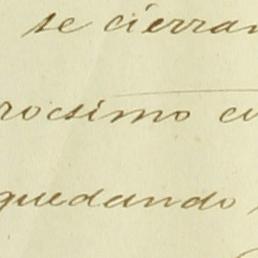 se cierran
rocsimo cu
quedando